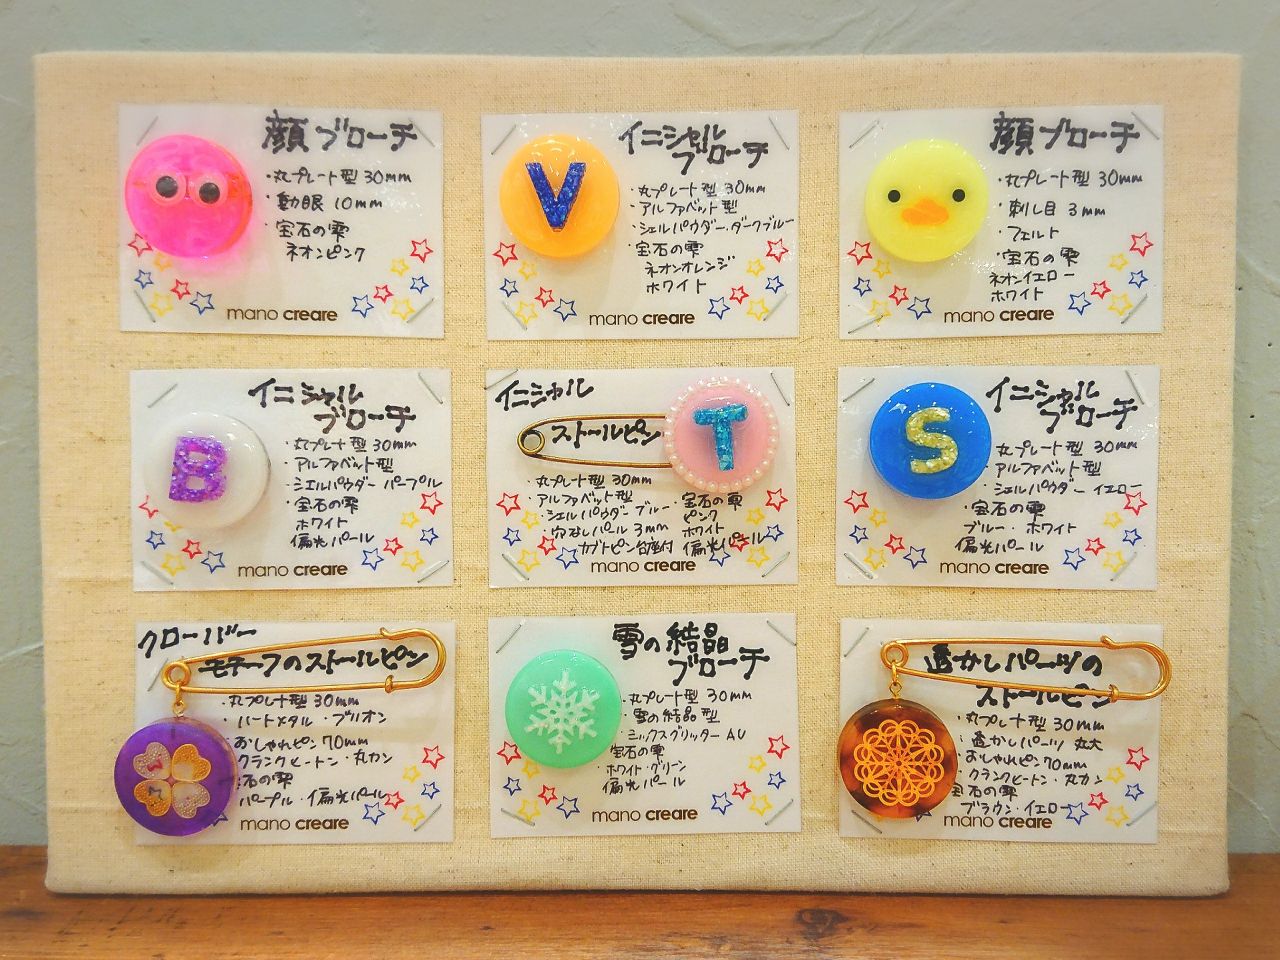 顔ブローチ
・丸プレート型 30mm
・動眼 10mm
・宝石の雫
ネオンピンク
mano creare
イニシャル
ブローチ
・丸プレート型 30mm
・アルファベット型
・シェルパウダー・ダークブルー
・宝石の雫
ネオンオレンジ
ホワイト
mano creare
顔ブローチ
・丸プレート型 30mm
・刺し目 3mm
・フェルト
・宝石の雫
ネオンイエロー
ホワイト
mano creare
イニシャル
ブローチ
・丸プレート型 30mm
・アルファベット型
・シェルパウダー パープル
・宝石の雫
ホワイト
偏光パール
B
mano creare
イニシャル
ストールピン
T
・丸プレート型 30mm
・アルファベット型
・シェルパウダー ブルー
・穴なしパール 3mm
・カブトピン台座付
・宝石の雫
ピンク
ホワイト
偏光パール
mano creare
イニシャル
ブローチ
S
・丸プレート型 30mm
・アルファベット型
・シェルパウダー イエロー
・宝石の雫
ブルー・ホワイト
偏光パール
mano creare
クローバー
モチーフのストールピン
・丸プレート型 30mm
・ハートメタル・ブリオン
・おしゃれピン 70mm
・クランクヒートン・丸カン
石の雫
パープル・偏光パール
mano creare
雪の結晶
ブローチ
・丸プレート型 30mm
・雪の結晶型
・ミックスグリッター AU
宝石の雫
・ホワイト・グリーン
偏光パール
mano creare
透かしパーツの
ストールピン
・丸プレート型 30mm
・透かしパーツ 丸大
おしゃれピン 70mm
・クランクヒートン・丸カン
宝石の雫
ブラウン・イエロー
mano creare
V